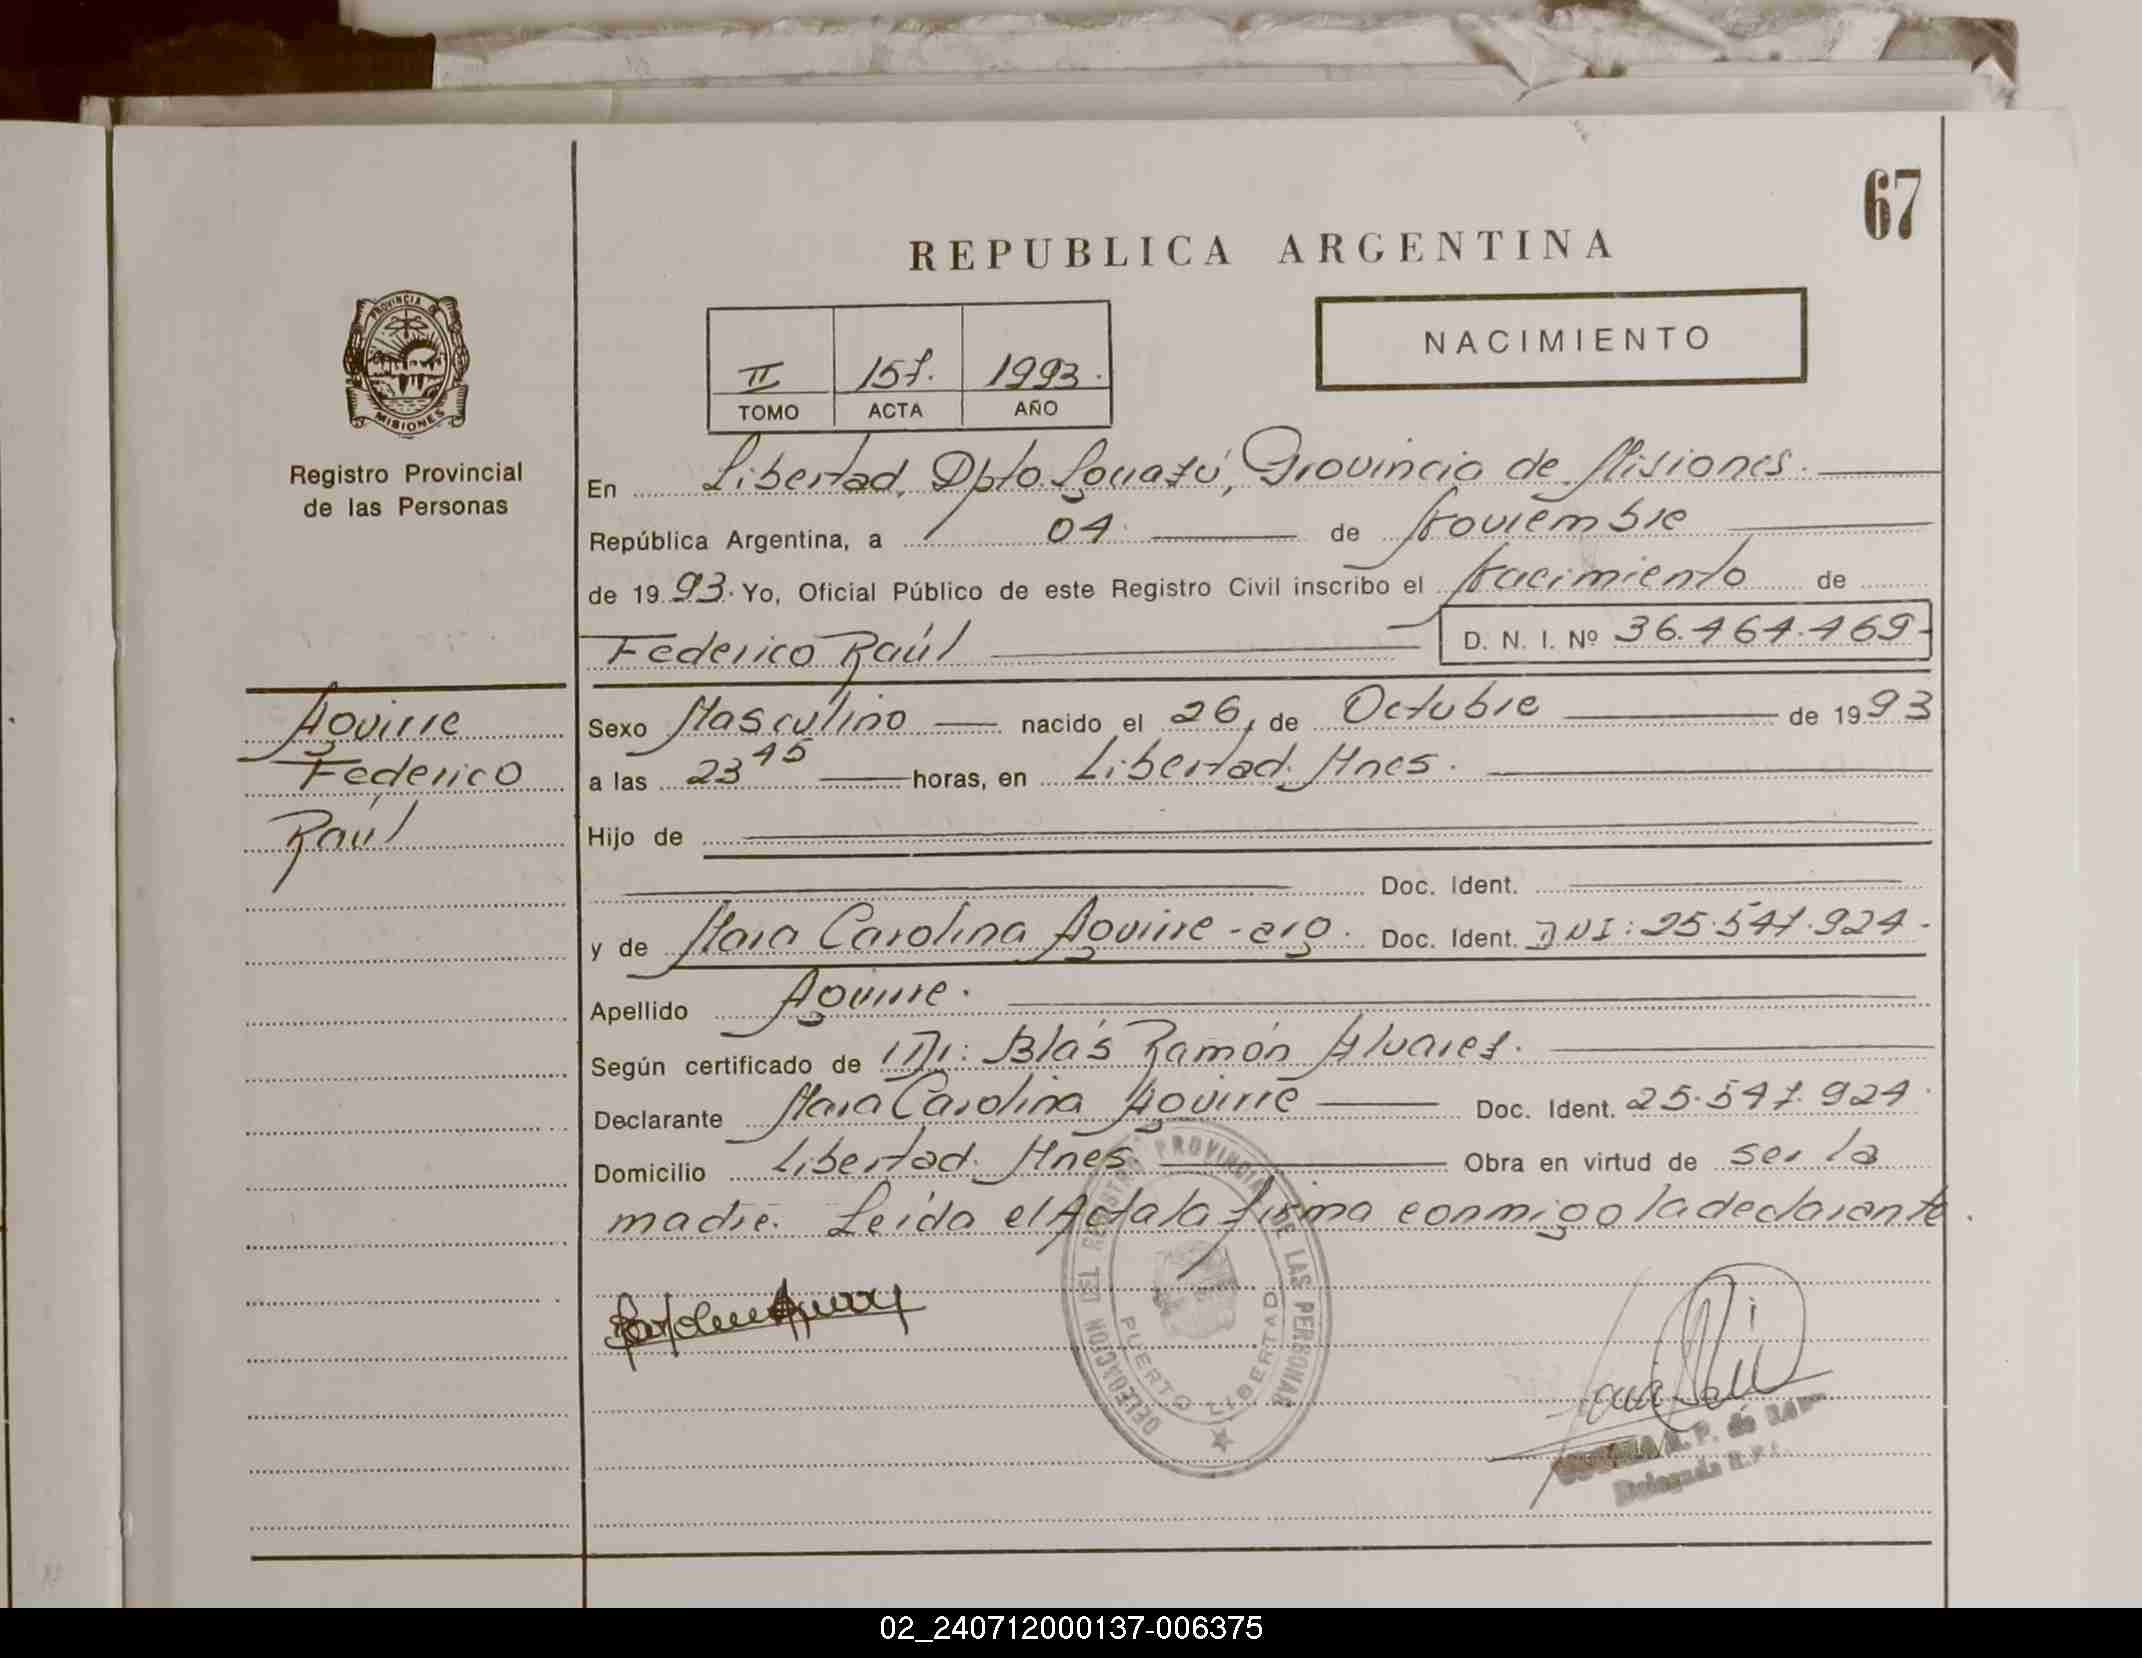 67
REPUBLICA ARGENTINA
PROVINCIA DE
MISIONES
Registro Provincial
de las Personas
II 157. 1993.
TOMO ACTA AÑO
NACIMIENTO
En Libertad, Dpto. Iguazú, Provincia de Misiones.
República Argentina, a 04 de Noviembre
de 1993. Yo, Oficial Público de este Registro Civil inscribo el Nacimiento de
Federico Raúl D. N. I. Nº 36.464.469-
Aguirre
Federico
Raúl
Sexo Masculino nacido el 26, de Octubre de 1993
a las 23 45 horas, en Libertad. Mnes.
Hijo de
Doc. Ident.
y de Mara Carolina Aguirre - arg. Doc. Ident. DNI: 25.547.924-
Apellido Aguirre.
Según certificado de Dr: Blás Ramón Alvarez.
Declarante Mara Carolina Aguirre Doc. Ident. 25.547.924.
Domicilio Libertad. Mnes. Obra en virtud de ser la
madre. Leída el Acta la firma conmigo la declarante.
DELEGACION DEL REGISTRO PROVINCIAL DE LAS PERSONAS
PUERTO LIBERTAD
Delegada
02_240712000137-006375